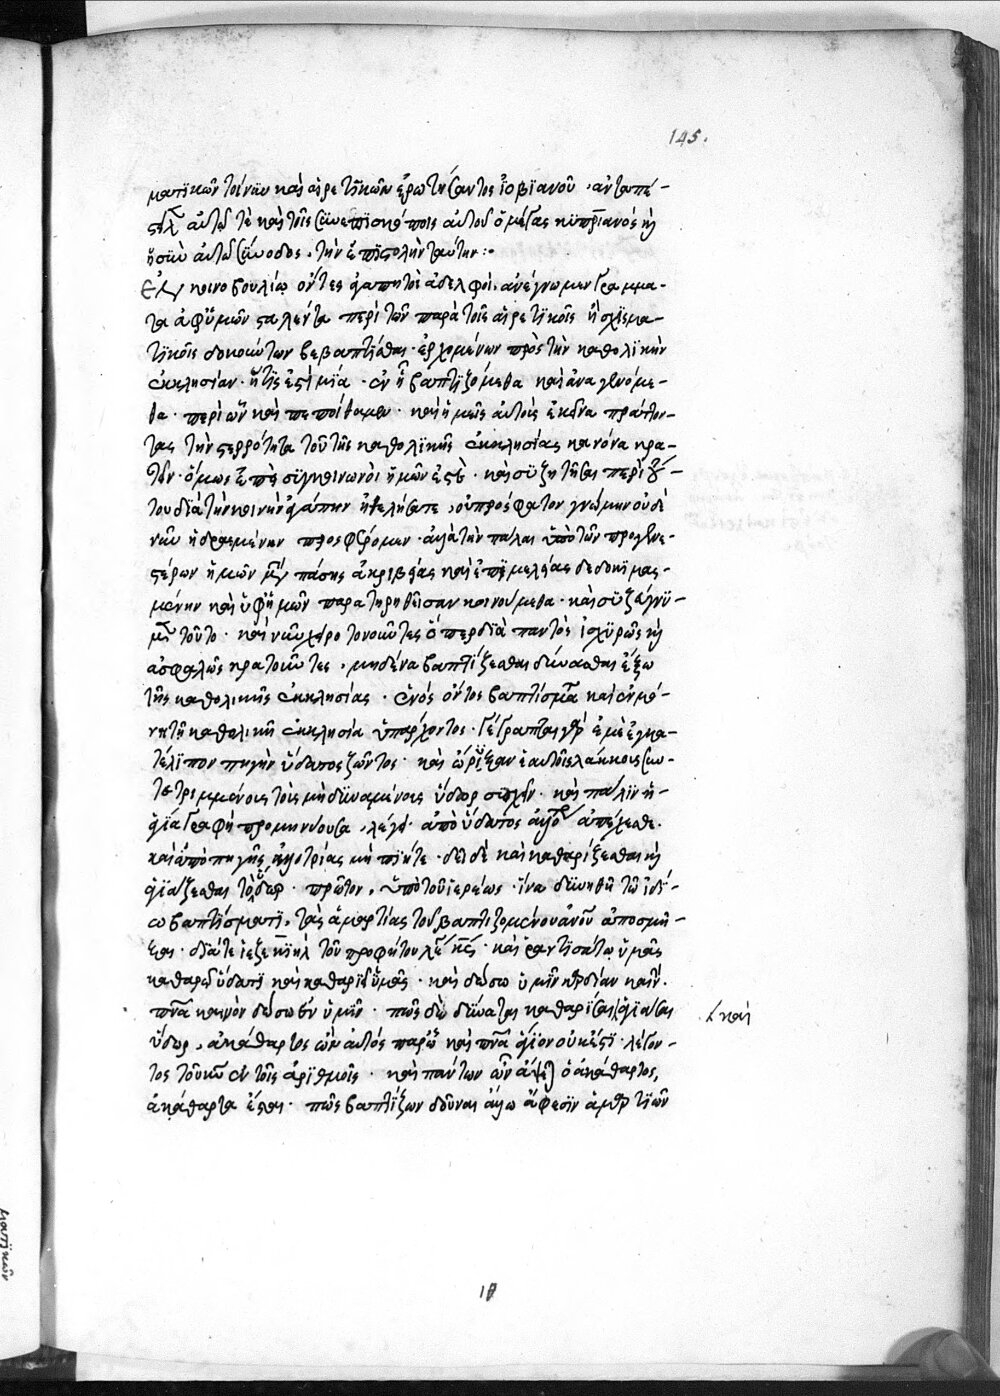 145.
ματικῶν τοίνυν καὶ αἱρετικῶν ἐρωτήσαντος ἰοβϊανοῦ, ἀνταπέ-
στλ αὐτῷ τὲ καὶ τοῖς συνεπϊσκόποις αὐτοῦ ὁ μέγας κϋπρϊανός κὴ
ἡ σὺν αὐτῷ σύνοδος, τὴν ἐπϊστολὴν ταύτην:·
Ἐν κοινοβουλίῳ ὄντες ἀγαπητοὶ ἀδελφοὶ, ἀνέγνωμεν γράμμα-
τα ἀφ' ὑμῶν σταλέντα περὶ τῶν παρὰ τοῖς αἱρετϊκοῖς ἢ σχϊσμα-
τϊκοῖς δοκούντων βεβαπτίσθαι· ἐρχομένων πρὸς τὴν καθολϊκὴν
ἐκκλησίαν· ἥτϊς ἐστὶ μϊα· ἐν ᾗ βαπτϊζόμεθα καὶ ἀναγεννόμε-
θα· περὶ ὧν καὶ πεποίθαμεν· καὶ ὑμεῖς αὐτοὺς ἐκεῖνα πράττον-
τας τὴν στερρότητα τοῦ τῆς καθολϊκῆς ἐκκλησίας κανόνα κρα-
τεῖν· ὅμως ἐπεὶ συγκοινωνοὶ ἡμῶν ἐστὲ· καὶ συζητῆσαι περὶ τού-
του διὰ τὴν κοινὴν ἀγάπην ἠθελήσατε, οὐ πρόσφατον γνώμην οὐδὲ
νῦν ἡδρασμένην προσφέρομεν· ἀλλὰ τὴν πάλαι ὑπὸ τῶν προγενε-
στέρων ἡμῶν μετὰ πάσης ἀκριβείας καὶ ἐπϊμελείας δεδοκϊμασ-
μένην καὶ ὑφ' ἡμῶν παρατηρηθεῖσαν κοινούμεθα· καὶ συζεύγνϋ-
μεν τοῦτο· καὶ νῦν χειροτονοῦντες ὅπερ διὰ παντὸς ἰσχυρῶς κὴ
ἀσφαλῶς κρατοῦντες, μηδένα βαπτίζεσθαι δύνασθαι ἔξω
τῆς καθολικῆς ἐκκλησίας· ἑνός ὄντος βαπτίσματος καὶ ἐν μό-
νῃ τῇ καθολικῇ ἐκκλησία ὑπάρχοντος· Γέγραπται γὰρ ἐμὲ ἐγκα-
τέλϊπον πηγὴν ὕδατος ζῶντος· καὶ ὤρυξαν ἑαυτοῖς λάκκους συν-
τετριμμένους τοὺς μὴ δϋναμένους ὕδωρ συσχεῖν· καὶ πάλϊν ἡ
ἁγία γραφὴ προμηνύουσα, λέγει· ἀπὸ ὕδατος ἀλλοτρίου ἀπέχεσθε.
καὶ ἀπὸ πηγῆς ἀλλοτρίας μὴ πίητε· δεῖ δὲ καὶ καθαρίζεσθαι κὴ
ἁγϊάζεσθαι τὸ ὕδωρ· πρῶτον, ὑπὸ τοῦ ἱερέως· ἵνα δϋνηθῇ τῷ ἰδί-
ῳ βαπτίσματϊ, τὰς ἁμαρτίας τοῦ βαπτιζομένου ἀνοῦ ἀποσμῆ-
ξαι· διά τε ἰεζεκϊὴλ τοῦ προφήτου λέγει κς· καὶ ραντϊσάτω ὑμᾶς
καθαρῷ ὕδατι καὶ καθαρϊῶ ὑμᾶς· καὶ δώσω ὑμῖν καρδίαν καινήν·
πνα καινὸν δώσω ἐν ὑμῖν· πῶς δὲ δύναται καθαρίσαι ἁγιάσαι
‹ καὶ
ὕδωρ, ἀκάθαρτος ὢν αὐτός παρ' ᾧ καὶ πνα ἅγιον οὐκ ἔστι· λέγον-
τος τοῦ κυ ἐν τοῖς ἀριθμοῖς· καὶ πάντων ὧν ἅψεται ὁ ἀκάθαρτος,
ἀκάθαρτα ἔσται· πῶς βαπτίζων δοῦναι ἄλλῳ ἄφεσϊν ἁμαρτϊῶν
ματικῶν